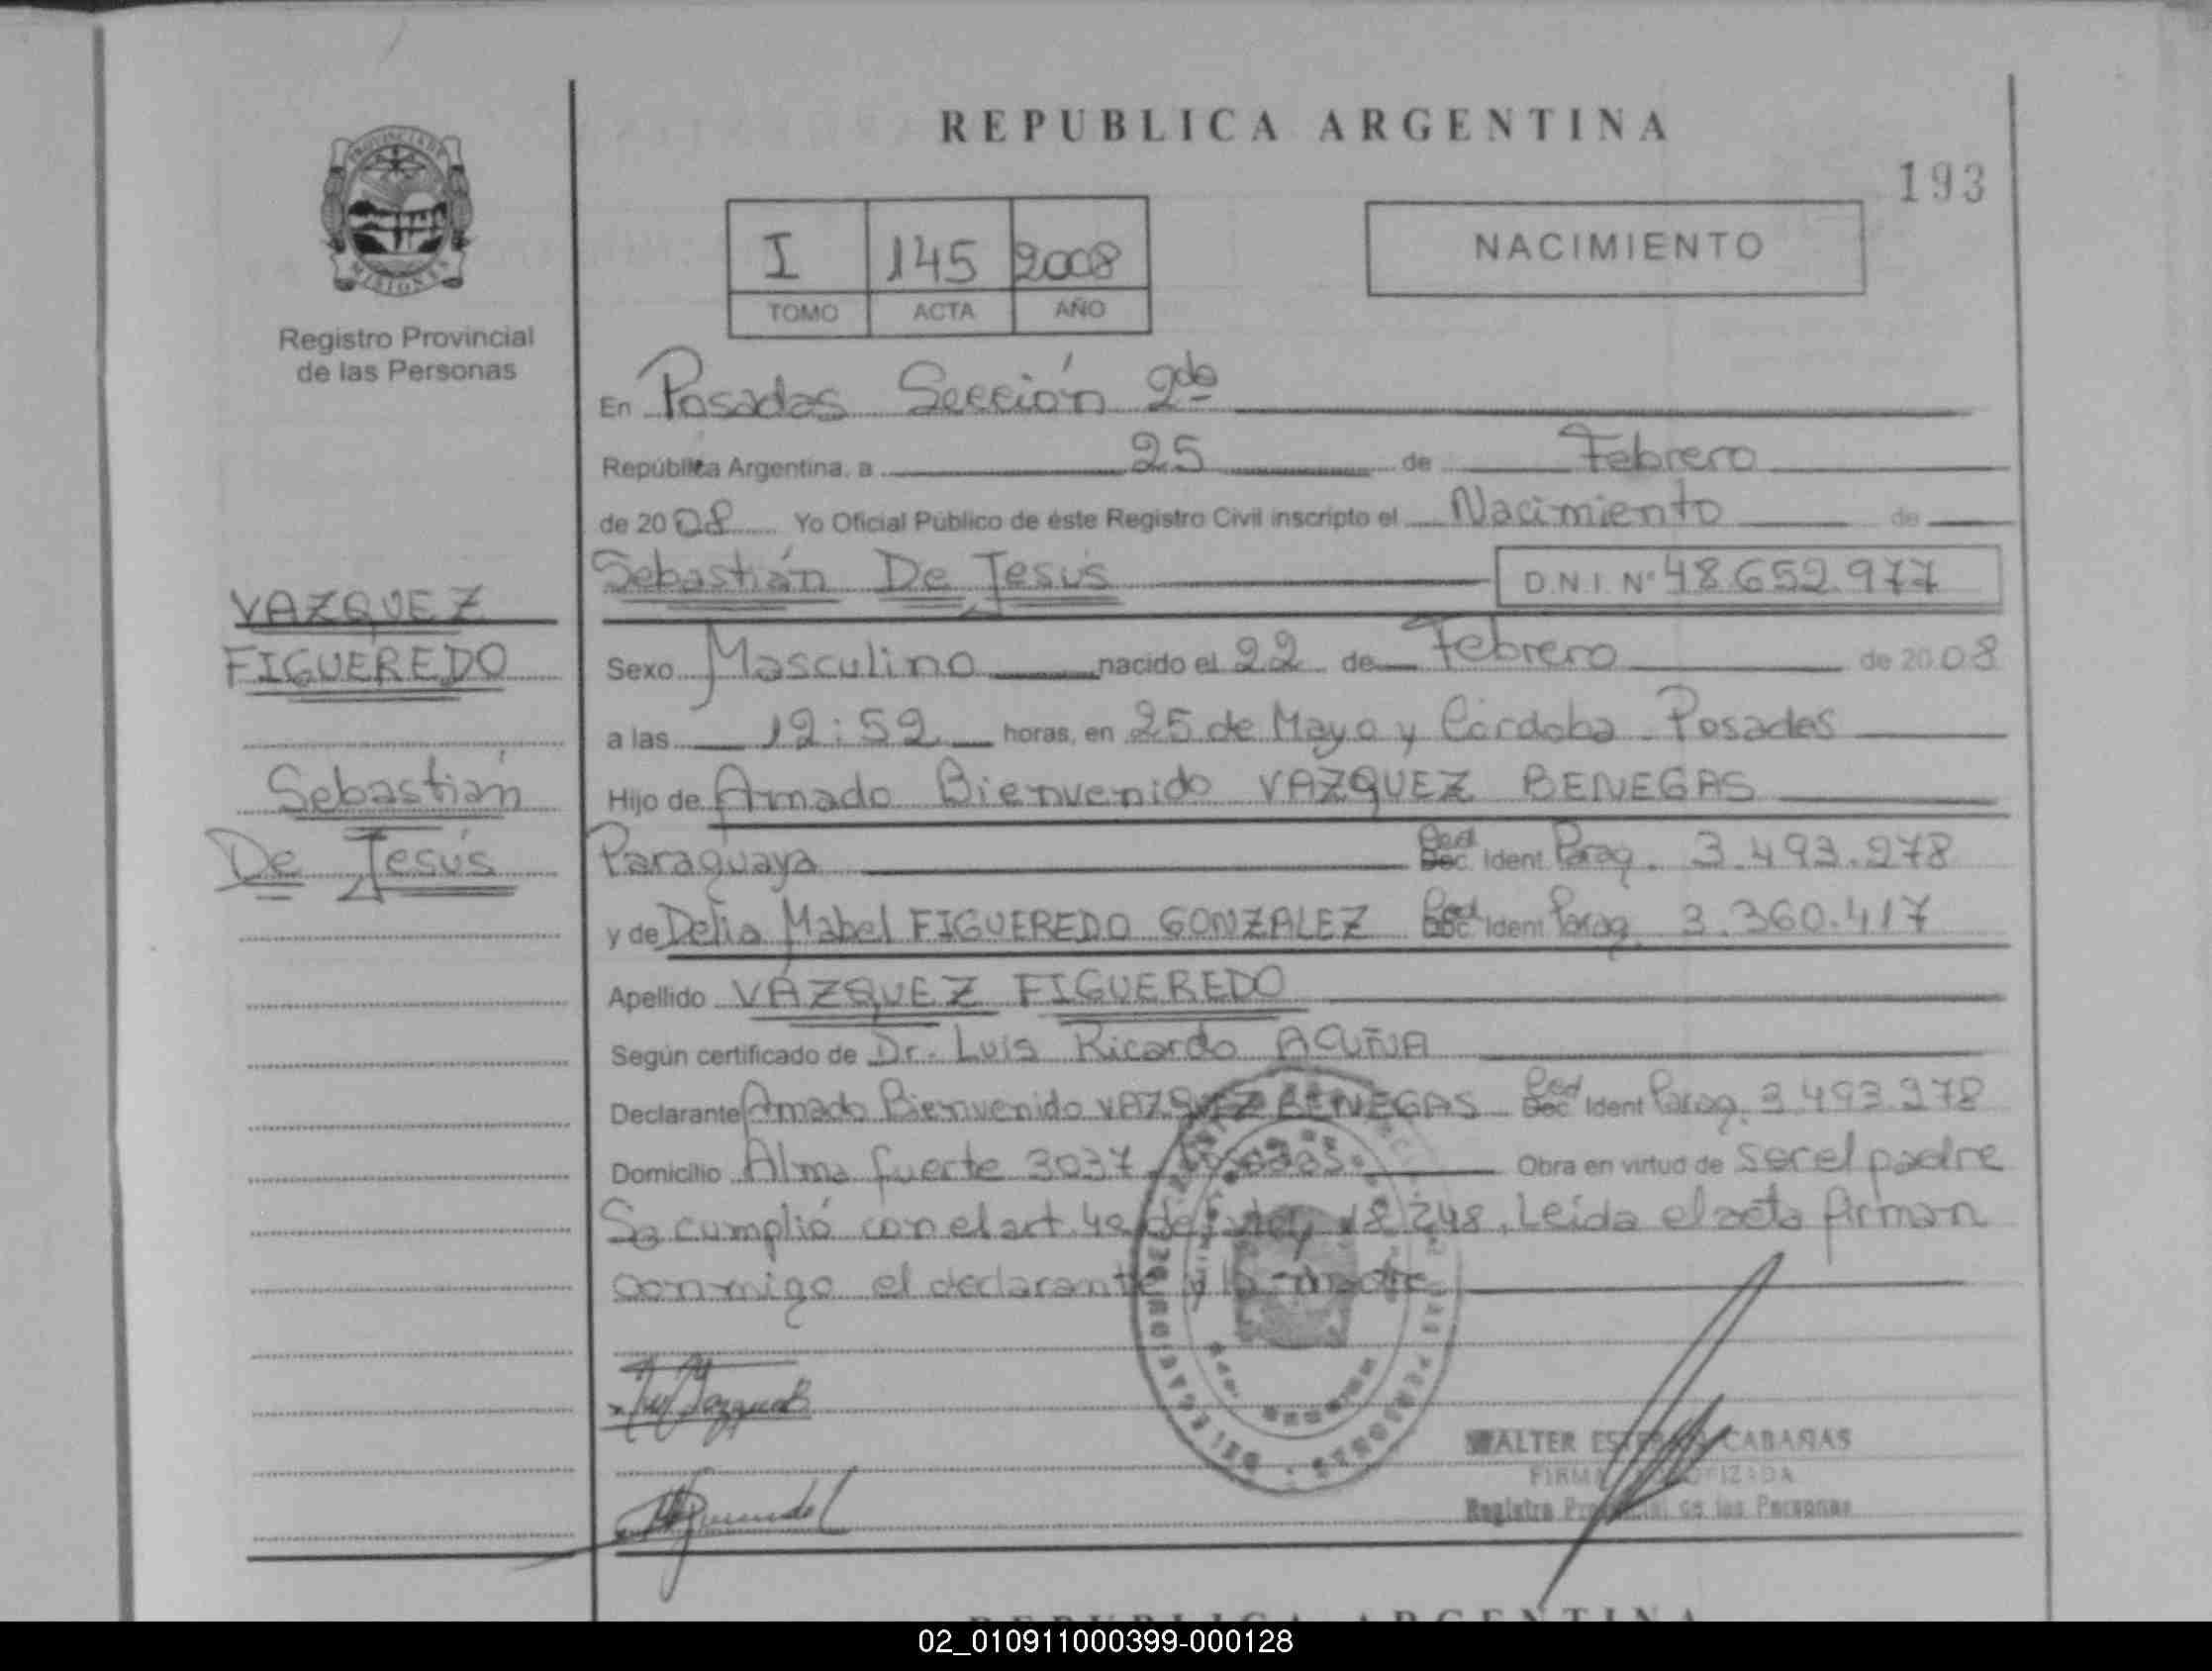 REPUBLICA ARGENTINA
193
PROVINCIA DE
MISIONES
Registro Provincial
de las Personas
I 145 2008
TOMO ACTA AÑO
NACIMIENTO
En Posadas Sección 2da
República Argentina, a 25 de Febrero
de 20 08 Yo Oficial Público de éste Registro Civil inscripto el Nacimiento de
Sebastián De Jesús D.N.I. N° 48.652.977
VAZQUEZ
FIGUEREDO
Sebastián
De Jesús
Sexo Masculino nacido el 22 de Febrero de 20 08
a las 12:52 horas, en 25 de Mayo y Córdoba - Posadas
Hijo de Armado Bienvenido VAZQUEZ BENEGAS
Paraguaya Ced Doc Ident Parag. 3.493.278
y de Delia Mabel FIGUEREDO GONZALEZ Ced Doc Ident Parag. 3.360.417
Apellido VÁZQUEZ FIGUEREDO
Según certificado de Dr. Luis Ricardo ACUÑA
Declarante Armado Bienvenido VAZQUEZ BENEGAS Ced Doc Ident Parag. 3.493.278
Domicilio Alma fuerte 3037 Posadas Obra en virtud de ser el padre
Se cumplió con el art. 4e de la ley 18.248. Leída el acta firman
conmigo el declarante y la madre
WALTER CABAÑAS
FIRMA AUTORIZADA
Registro Provincial de las Personas
REPUBLICA ARGENTINA
02_010911000399-000128